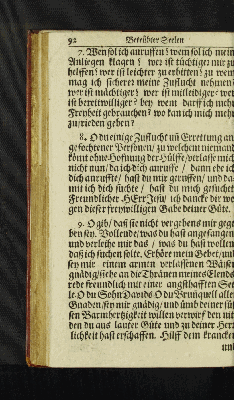 92 Betrübter Seelen
7. Wen sol ich anruffen? wem sol ich mein
Anliegen klagen? wer ist tüchtiger mir zu
helffen? wer ist leichter zu erbitten? zu wem
mag ich sicherer meine Zuflucht nehmen?
wer ist mächtiger? wer ist mitleidiger? wer
ist bereitwilliger? bey wem darff ich mehr
Freyheit gebrauchen? wo kan ich mich mehr
zu frieden geben?
8. O du einige Zuflucht uñ Errettung an-
gefochtener Personen/ zu welchem niemand
könt ohne Hofnung der Hülffe/ verlasse mich
nicht nun/ da ich dich anruffe/ dann ehe ich
dich anruffte/ hast du mir geruffen/ und da-
mit ich dich suchte/ hast du mich gesuchet
Freundlicher HErr JEsu/ ich dancke dir we-
gen dieser freywilligen Gabe deiner Güte.
9. O gib/ daß sie nicht vergebens mir gege-
ben sey. Vollende/ was du hast angefangen
und verleihe mir das/ was du hast wollen
daß ich suchen solte. Erhöre mein Gebet/ und
sey mir einem armen verlassenen Wäisen
gnädig/ siehe an die Thränen meines Elends
rede freundlich mit einer angsthafften See-
le. O du Sohn Davids O du Brunquell aller
Gnaden/ sey mir gnädig/ und umb deiner süs-
sen Barmhertzigkeit willen verwirf den nit
den du aus lauter Güte und zu deiner Herr-
lichkeit hast erschaffen. Hilff dem krancken
und